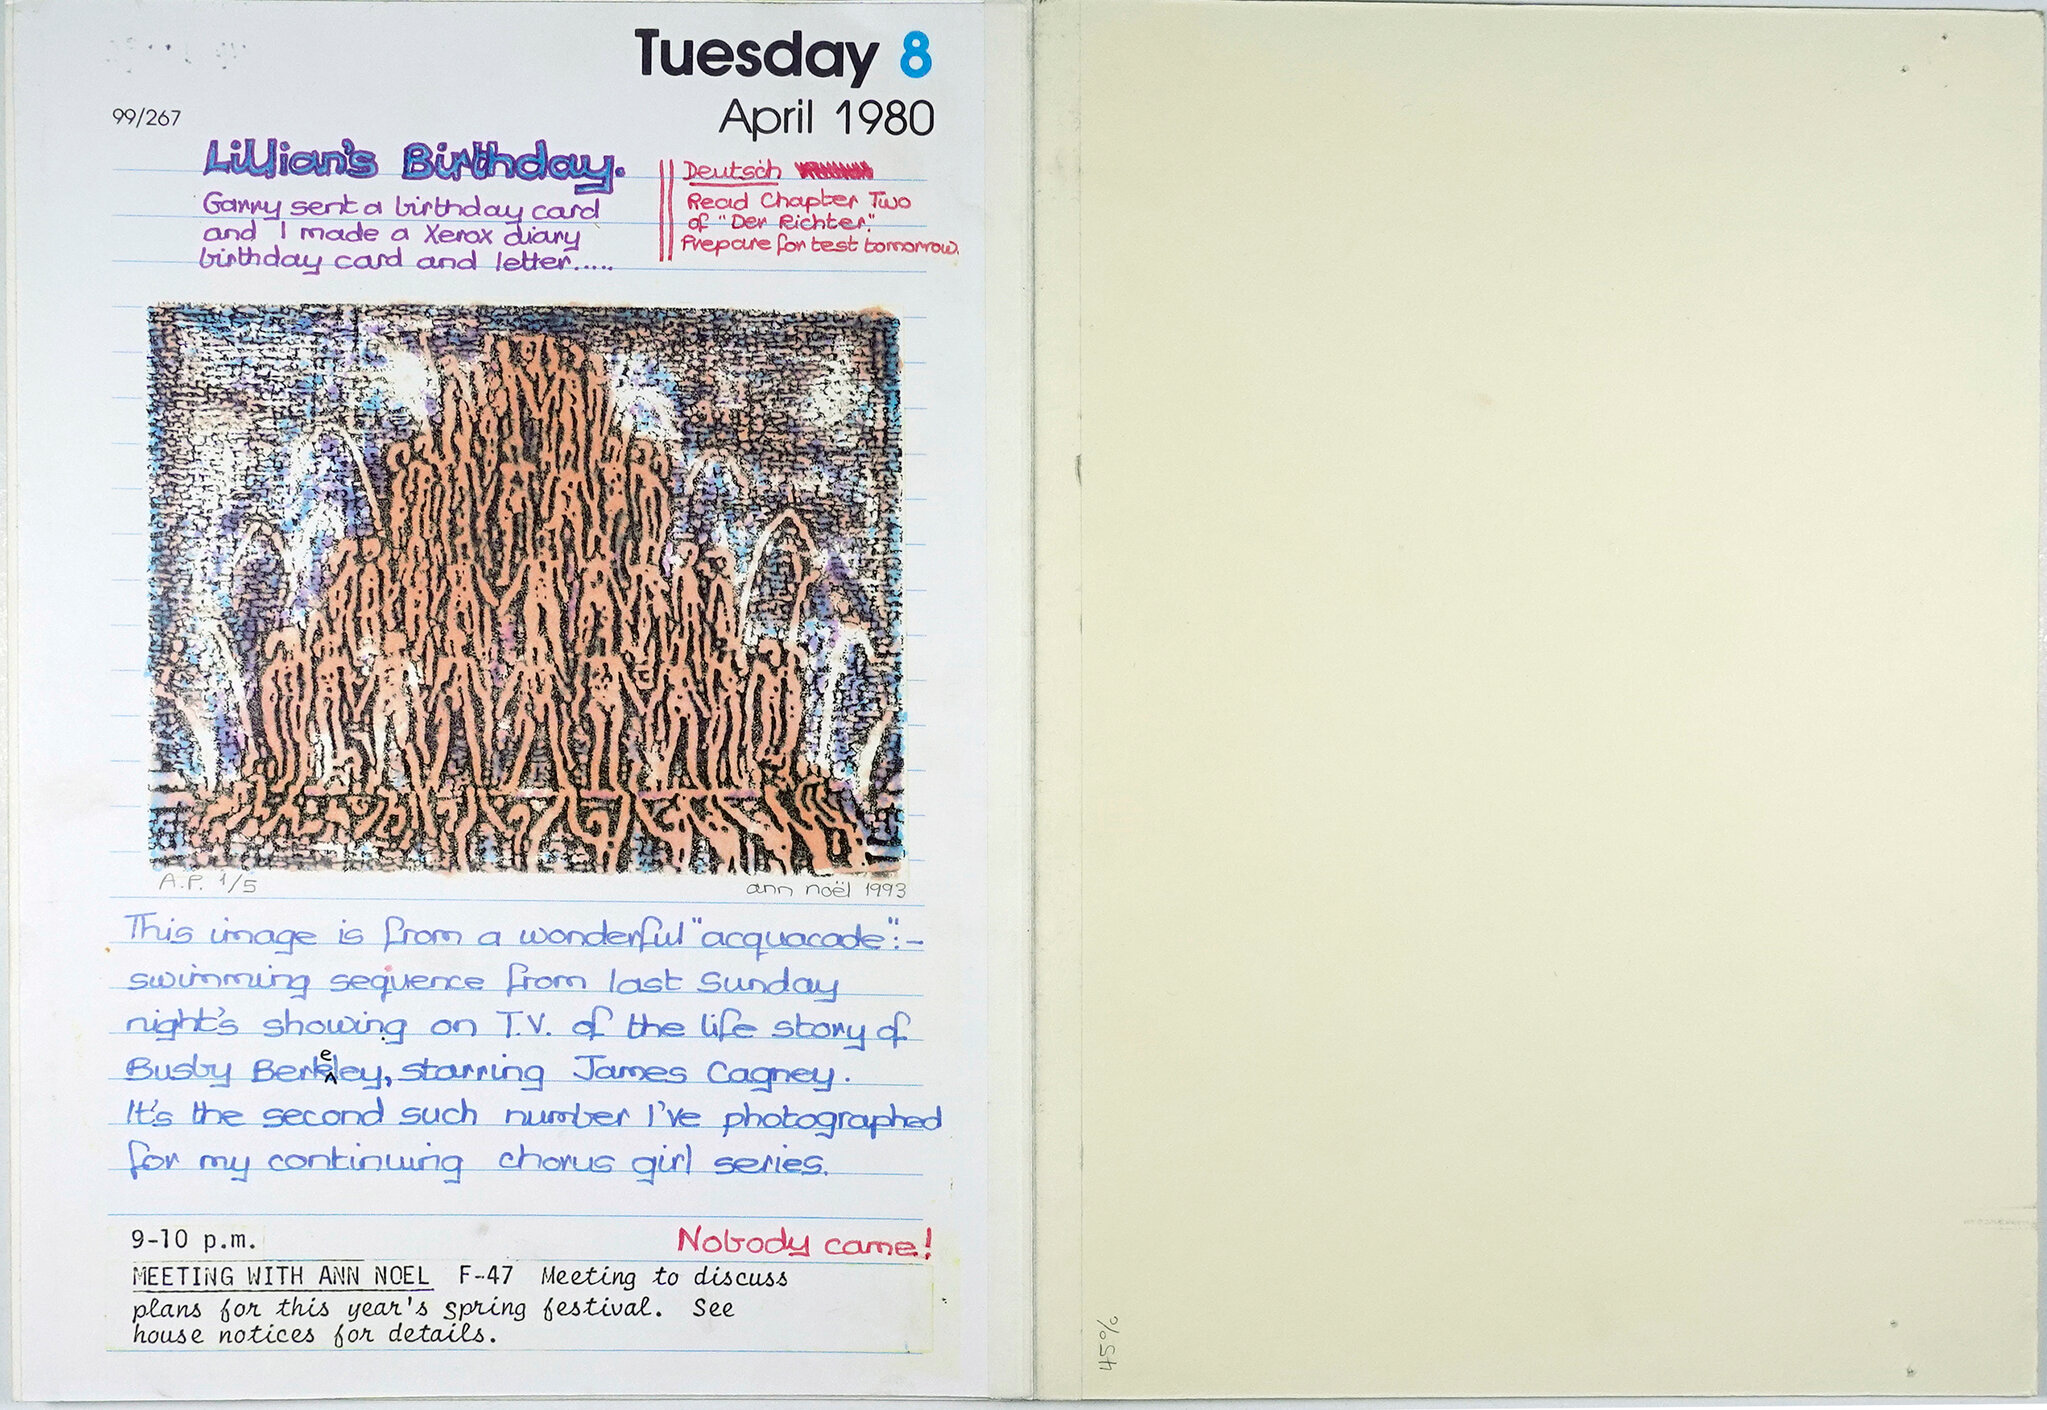 Tuesday 8
April 1980
99/267
Lillian's Birthday.
Garry sent a birthday card
and I made a Xerox diary
birthday card and letter.....
Deutsch
Read Chapter Two
of "Der Richter".
Prepare for test tomorrow.
A.P. 1/5
ann noël 1993
This image is from a wonderful "acquacade":-
swimming sequence from last Sunday
night's showing on T.V. of the life story of
Busby Berkeley, starring James Cagney.
It's the second such number I've photographed
for my continuing chorus girl series.
9-10 p.m.
Nobody came!
MEETING WITH ANN NOEL F-47 Meeting to discuss
plans for this year's spring festival. See
house notices for details.
45%